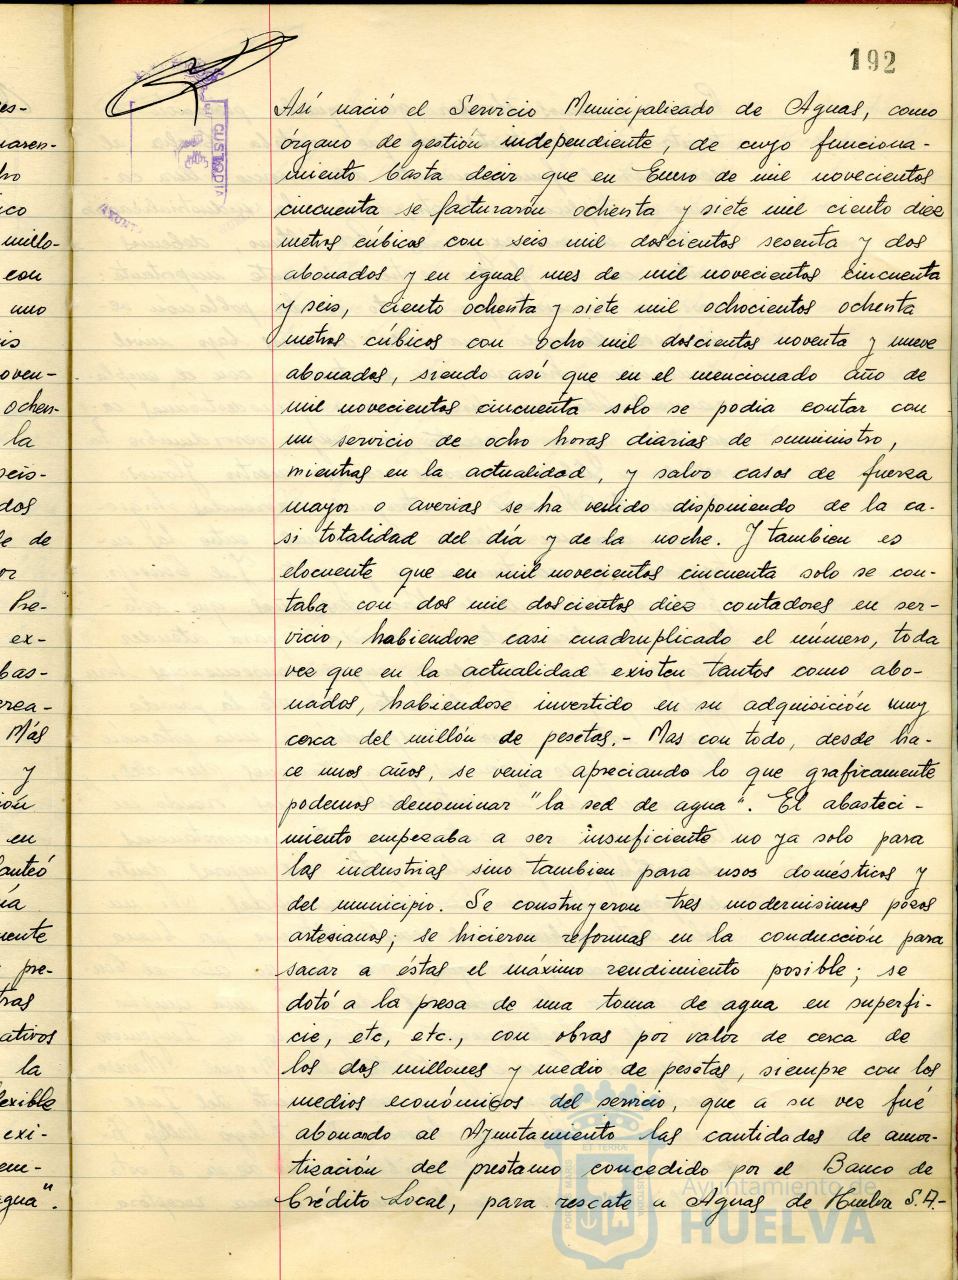 192
Así nació el Servicio Municipalicado de Aguas, como
órgano de gestión independiente, de cuyo funciona-
miento basta decir que en Enero de mil novecientos
cincuenta se facturaron ochenta y siete mil ciento diez
metros cúbicos con seis mil doscientos sesenta y dos
abonados y en igual mes de mil novecientos cincuenta
y seis, ciento ochenta y siete mil ochocientos ochenta
metros cúbicos con ocho mil doscientos noventa y nueve
abonados, siendo así que en el mencionado año de
mil novecientos cincuenta solo se podia contar con
un servicio de ocho horas diarias de suministro,
mientras en la actualidad, y salvo casos de fuerza
mayor o averias se ha venido disponiendo de la ca-
si totalidad del día y de la noche. Y tambien es
elocuente que en mil novecientos cincuenta solo se con-
taba con dos mil doscientos diez contadores en ser-
vicio, habiendose casi cuadruplicado el número, toda
vez que en la actualidad existen tantos como abo-
nados, habiendose invertido en su adquisición muy
cerca del millón de pesetas.- Mas con todo, desde ha-
ce unos años, se venia apreciando lo que graficamente
podemos denominar "la sed de agua". El abasteci-
miento empezaba a ser insuficiente no ya solo para
las industrias sino tambien para usos domésticos y
del municipio. Se construyeron tres modernisimos pozos
artesianos; se hicieron reformas en la conducción para
sacar a éstas el máximo rendimiento posible; se
dotó a la presa de una toma de agua en superfi-
cie, etc, etc., con obras por valor de cerca de
los dos millones y medio de pesetas, siempre con los
medios económicos del servicio, que a su vez fué
abonando al Ayuntamiento las cantidades de amor-
tización del prestamo concedido por el Banco de
Crédito Local, para rescate a Aguas de Huelva S.A.-
CUSTODIA
Ayuntamiento de
HUELVA